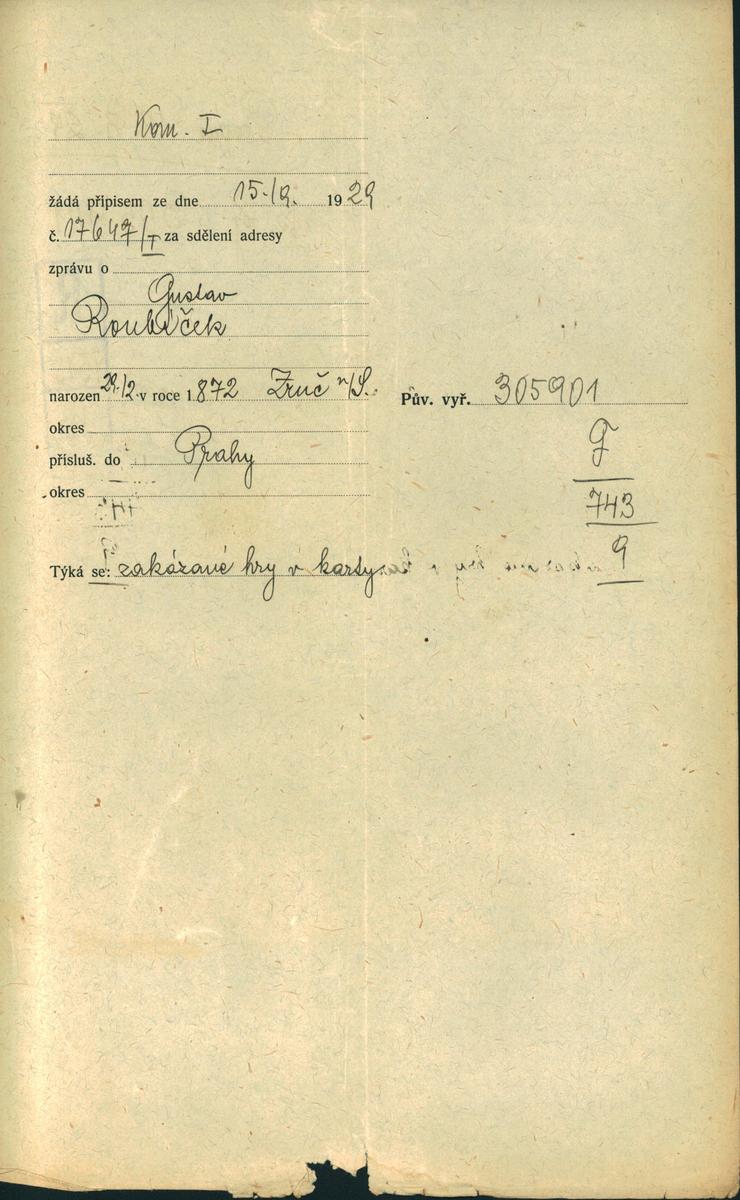 Kom. I
žádá přípisem ze dne 15./9. 1929
č. 17647/I za sdělení adresy
zprávu o
Gustav
Roubíček
narozen 29./2. v roce 1872 Zruč n/S.
Pův. vyř. 305901
okres
přísluš. do Prahy
okres
743
9
Týká se: zakázané hry v karty